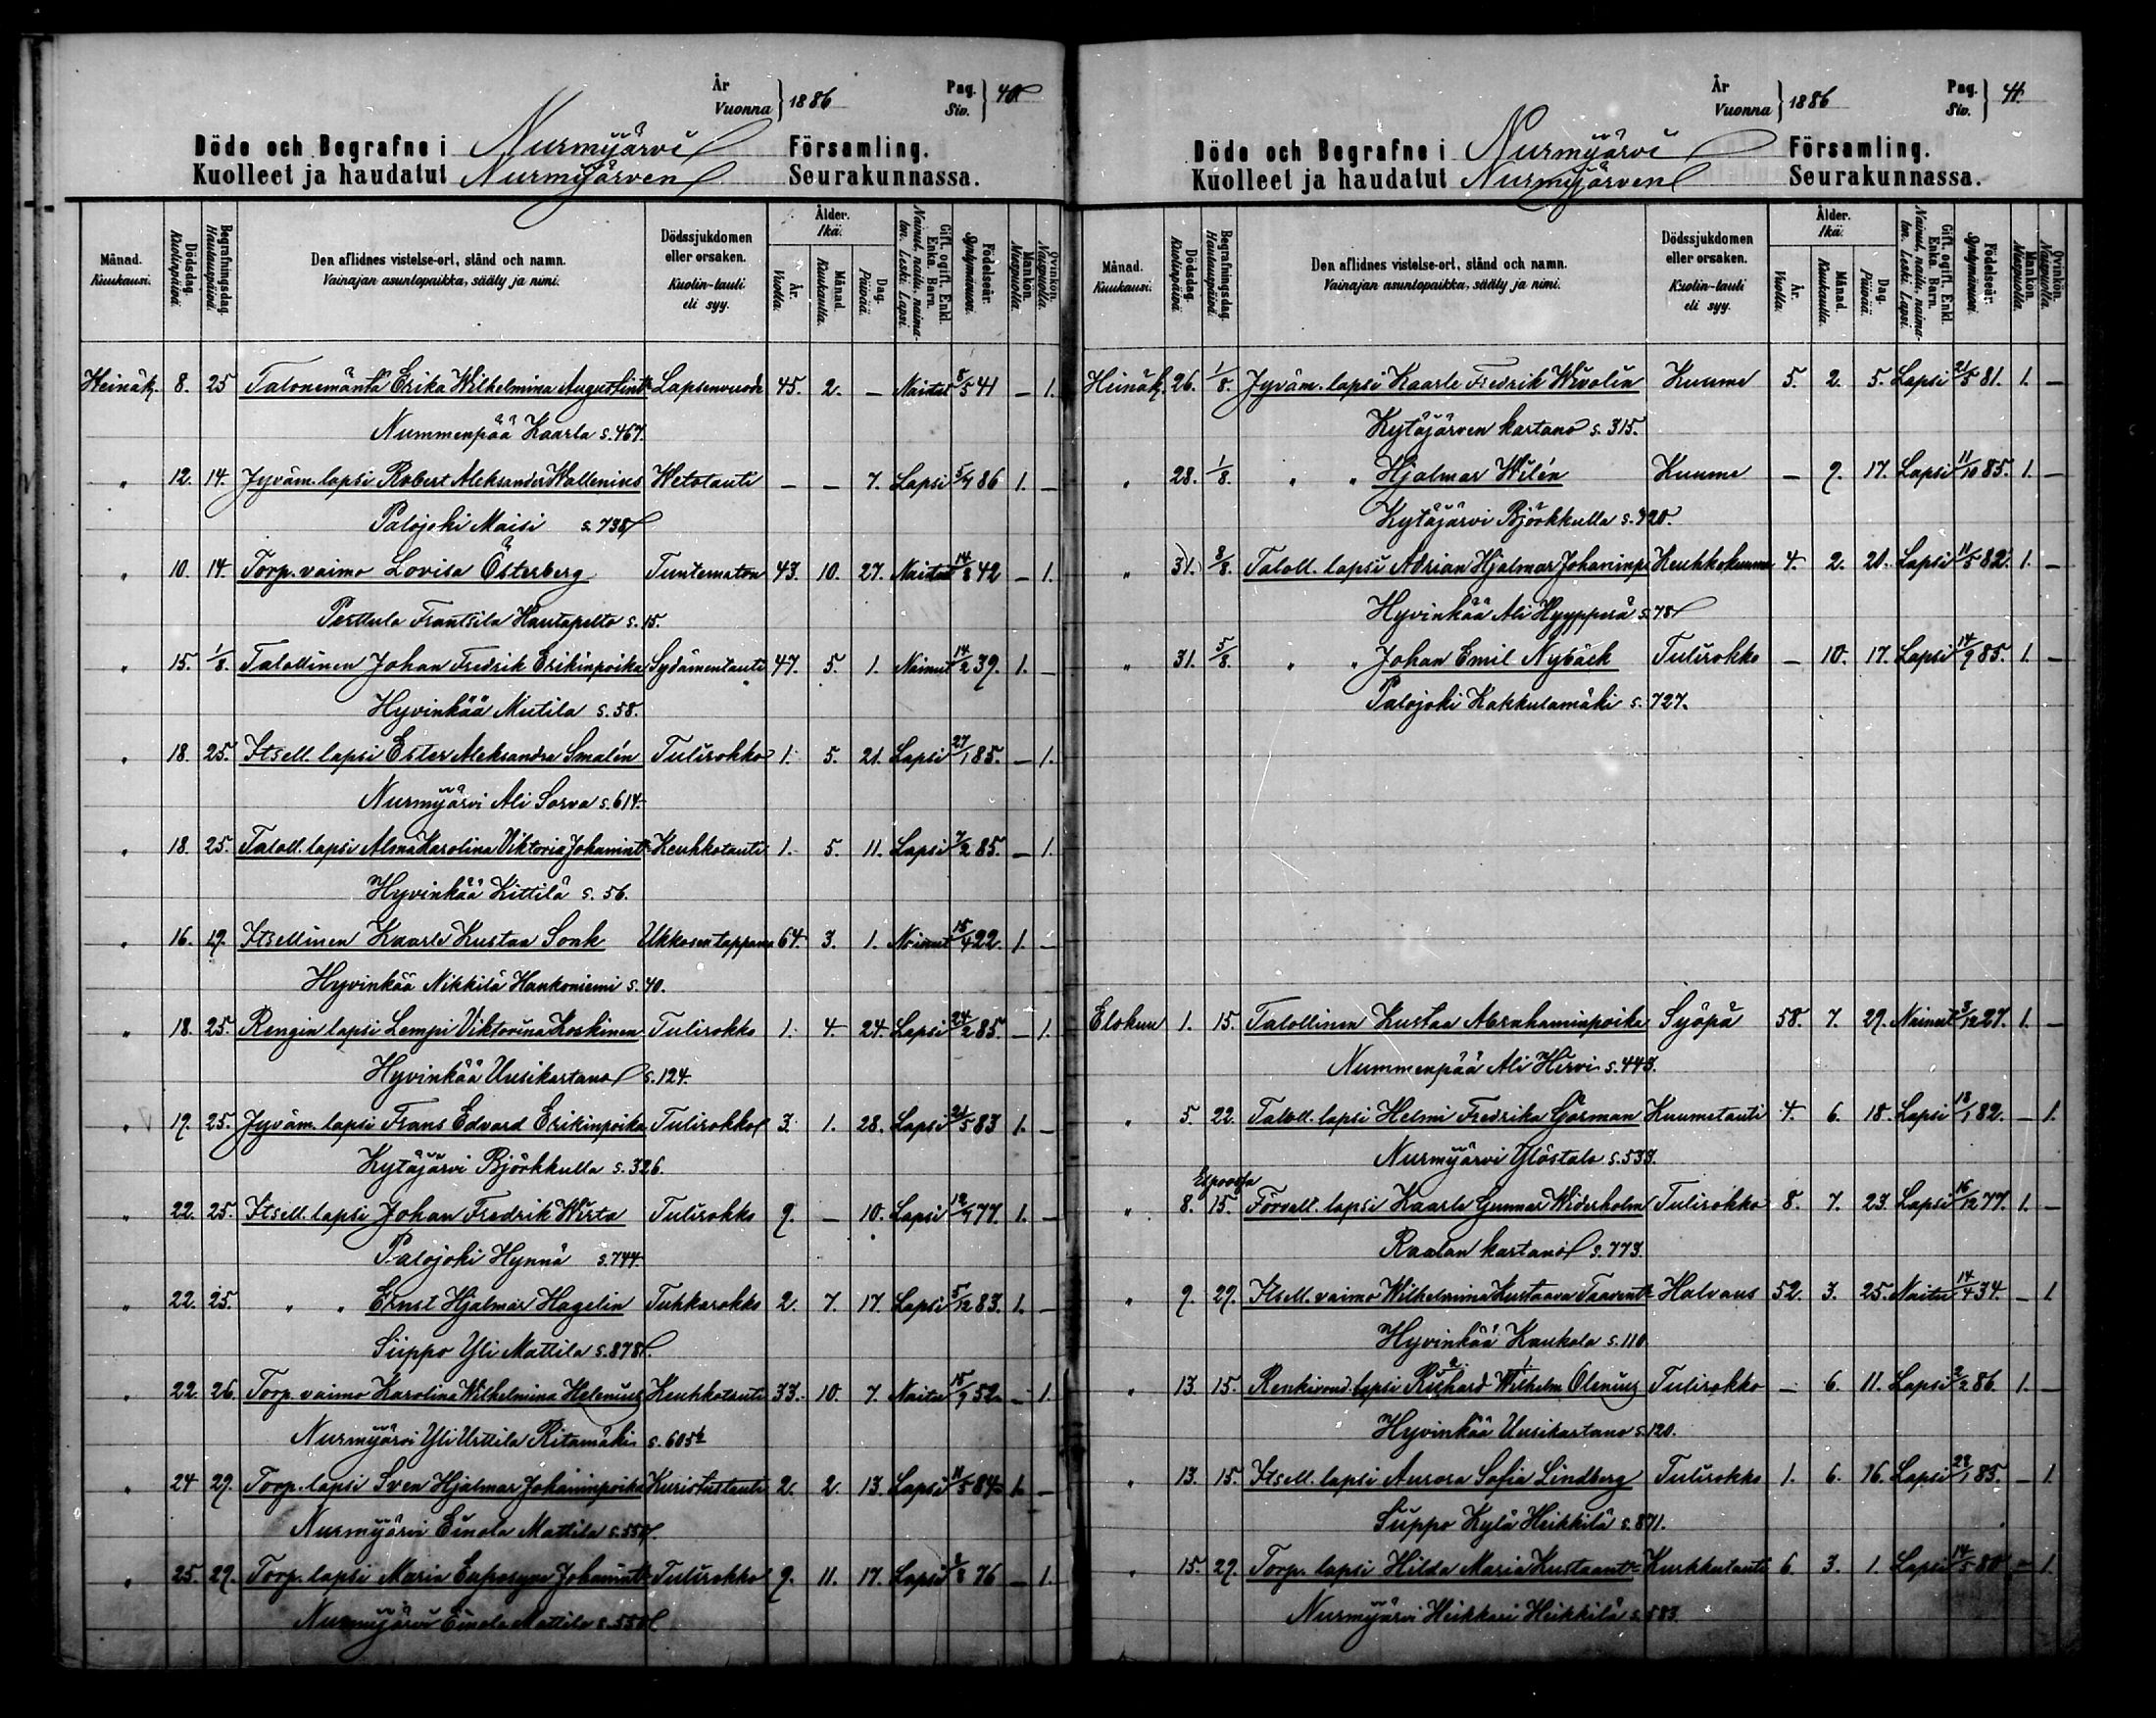 År
Vuonna } 1886
Pag.
Siv. } 40
Döde och Begrafne i Nurmijärvi Församling.
Kuolleet ja haudatut Nurmijärven Seurakunnassa.
Månad. Kuukausi.
Dödsdag. Kuolinpäivä.
Begrafningsdag. Hautauspäivä.
Den aflidnes vistelse-ort, stånd och namn.
Vainajan asuntopaikka, sääty ja nimi.
Dödssjukdomen eller orsaken.
Kuolin-tauti eli syy.
Ålder. Ikä.
År. Vuotta.
Månad. Kuukautta.
Dag. Päivää.
Gift, ogift, Enkl. Enka. Barn.
Nainut, naitu, naimaton. Leski. Lapsi.
Födelseår. Syntymävuosi.
Mankön. Miespuolta.
Qvinkön. Naispuolta.
Heinäk. 8. 25 Talonemäntä Erika Wilhelmina Augustint. Lapsenvuode 45. 2. — Naitu 8/5 41 — 1.
Nummenpää Kaarla s. 467.
" 12. 14. Jyväm. lapsi Robert Aleksander Wallenius Wetotauti — — 7. Lapsi 5/7 86 1. —
Palojoki Maisi s. 738
" 10. 14. Torp. vaimo Lovisa Österberg Tuntematon 43. 10. 27. Naitu 14/8 42 — 1.
Perttula Frantsila Hautapelto s. 15.
" 15. 1/8. Talollinen Johan Fredrik Erikinpoika Sydämentauti 47. 5. 1. Nainut 14/2 39. 1. —
Hyvinkää Mutila s. 58.
" 18. 25. Itsell. lapsi Ester Aleksandra Smalén Tulirokko 1. 5. 21. Lapsi 27/1 85. — 1.
Nurmijärvi Ali Sorva s. 614.
" 18. 25. Taloll. lapsi Alma Karolina Viktoria Johanint. Keuhkotauti 1. 5. 11. Lapsi 7/2 85. — 1.
Hyvinkää Kittilä s. 56.
" 16. 19. Itsellinen Kaarle Kustaa Sonk Ukkosen tappama 64. 3. 1. Nainut 15/4 22. 1. —
Hyvinkää Nikkilä Hankoniemi s. 40.
" 18. 25. Rengin lapsi Lempi Viktorina Koskinen Tulirokko 1. 4. 24. Lapsi 24/2 85. — 1.
Hyvinkää Uusikartano s. 124.
" 19. 25. Jyväm. lapsi Frans Edvard Erikinpoika Tulirokko 3. 1. 28. Lapsi 21/5 83 1. —
Kytäjärvi Björkkulla s. 326.
" 22. 25. Itsell. lapsi Johan Fredrik Wirta Tulirokko 9. — 10. Lapsi 12/7 77. 1. —
Palojoki Hynnä s. 744.
" 22. 25. " " Ernst Hjalmar Hagelin Tuhkarokko 2. 7. 17. Lapsi 5/12 83. 1. —
Suppo Yli Mattila s. 878.
" 22. 26. Torp. vaimo Karolina Wilhelmina Helenius Keuhkotauti 33. 10. 7. Naitu 15/9 52. — 1.
Nurmijärvi Yli Uttila Ritamäki s. 605½
" 24 29. Torp. lapsi Sven Hjalmar Johaninpoika Kuristustauti 2. 2. 13. Lapsi 11/5 84. 1. —
Nurmijärvi Einola Mattila s. 550.
" 25. 29. Torp. lapsi Maria Eufrosyne Johanint. Tulirokko 9. 11. 17. Lapsi 8 76 — 1.
Nurmijärvi Einola Mattila s. 550
År
Vuonna } 1886
Pag.
Siv. } 41.
Döde och Begrafne i Nurmijärvi Församling.
Kuolleet ja haudatut Nurmijärven Seurakunnassa.
Månad. Kuukausi.
Dödsdag. Kuolinpäivä.
Begrafningsdag. Hautauspäivä.
Den aflidnes vistelse-ort, stånd och namn.
Vainajan asuntopaikka, sääty ja nimi.
Dödssjukdomen eller orsaken.
Kuolin-tauti eli syy.
Ålder. Ikä.
År. Vuotta.
Månad. Kuukautta.
Dag. Päivää.
Gift, ogift, Enkl. Enka. Barn.
Nainut, naitu, naimaton. Leski. Lapsi.
Födelseår. Syntymävuosi.
Mankön. Miespuolta.
Qvinkön. Naispuolta.
Heinäk. 26. 1/8. Jyväm. lapsi Kaarle Fredrik Wivolin Kuume 5. 2. 5. Lapsi 21/5 81. 1. —
Kytäjärven kartano s. 315.
" 28. 1/8. " " Hjalmar Wilén Kuume — 9. 17. Lapsi 11/10 85. 1. —
Kytäjärvi Björkkulla s. 320.
" 31. 8/8. Taloll. lapsi Adrian Hjalmar Johaninp. Keuhkokuume 4. 2. 20. Lapsi 11/5 82. 1. —
Hyvinkää Ali Hyyppärä s. 78
" 31. 5/8. " " Johan Emil Nybäck Tulirokko — 10. 17. Lapsi 14/9 85. 1. —
Palojoki Kakkulamäki s. 727.
Elokuu 1. 15. Talollinen Kustaa Abrahaminpoika Syöpä 58. 7. 29. Nainut 3/12 27. 1. —
Nummenpää Ali Hirvi s. 443.
" 5. 22. Taloll. lapsi Helmi Fredrika Görman Kuumetauti 4. 6. 18. Lapsi 18/1 82. — 1.
Nurmijärvi Ylöstalo s. 533.
Espoossa
" 8. 15. Förvalt. lapsi Kaarle Gunnar Widerholm Tulirokko 8. 7. 23. Lapsi 16/12 77. 1. —
Raalan kartano s. 773.
" 9. 29. Itsell. vaimo Wilhelmina Kustaava Taavint. Halvaus 52. 3. 25. Naitu 14/4 34. — 1.
Hyvinkää Kaukola s. 110
2. 1.
" 13. 15. Renkivoud. lapsi Richard Wilhelm Olenius Tulirokko — 6. 11. Lapsi 2/2 86. 1. —
Hyvinkää Uusikartano s. 120.
" 13. 15. Itsell. lapsi Aurora Sofia Lindberg Tulirokko 1. 6. 16. Lapsi 28/1 85. — 1.
Suppo Kylä Heikkilä s. 871.
" 15. 29. Torp. lapsi Hilda Maria Kustaant. Kurkkutauti 6. 3. 1. Lapsi 14/5 80 — 1.
Nurmijärvi Heikkari Heikkilä s. 583.